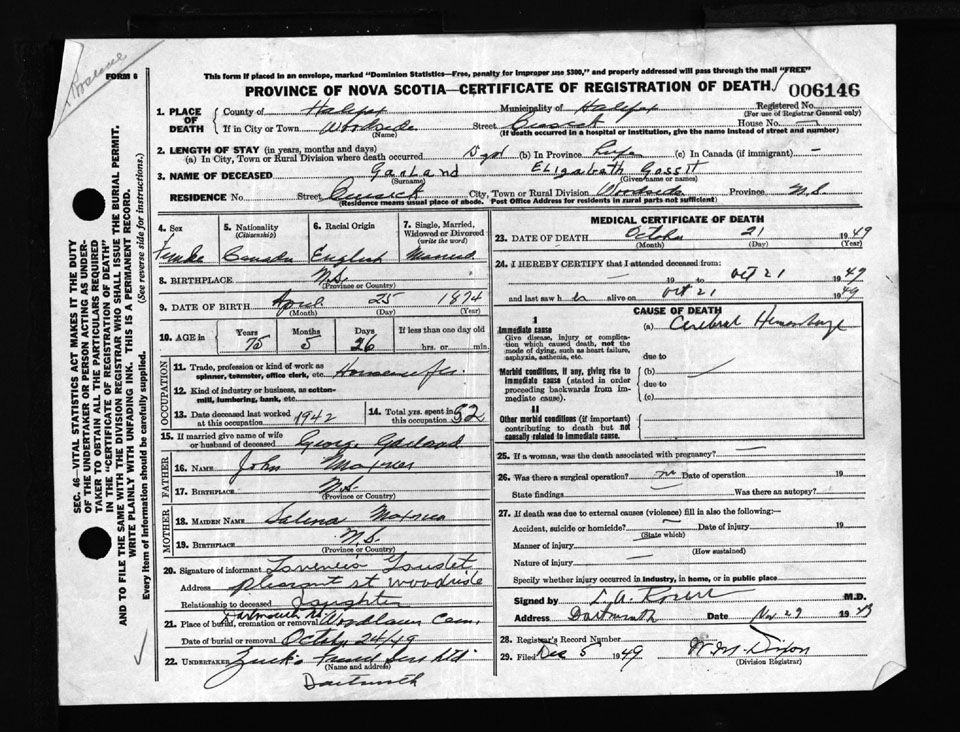 FORM 6
This form if placed in an envelope, marked "Dominion Statistics—Free, penalty for improper use $300," and properly addressed will pass through the mail "FREE"
PROVINCE OF NOVA SCOTIA—CERTIFICATE OF REGISTRATION OF DEATH 006146
1. PLACE OF DEATH
County of Halifax Municipality of Halifax Registered No.
(For use of Registrar General only)
If in City or Town Woodside Street House No. —
(Name) (If death occurred in a hospital or institution, give the name instead of street and number)
2. LENGTH OF STAY (in years, months and days)
(a) In City, Town or Rural Division where death occurred (b) In Province Life (c) In Canada (if immigrant) —
3. NAME OF DECEASED Garland Elizabeth
(Surname) (Given name or names)
RESIDENCE No. Street City, Town or Rural Division Woodside Province N.S
(Residence means usual place of abode. Post Office Address for residents in rural parts not sufficient)
4. Sex
Female
5. Nationality
(Citizenship)
Canada
6. Racial Origin
English
7. Single, Married, Widowed or Divorced
(write the word)
8. BIRTHPLACE N.S.
(Province or Country)
9. DATE OF BIRTH April 25 1874
(Month) (Day) (Year)
10. AGE in Years Months Days If less than one day old
75 5 26 hrs. or min.
OCCUPATION
11. Trade, profession or kind of work as spinner, teamster, office clerk, etc.
12. Kind of industry or business, as cotton-mill, lumbering, bank, etc.
13. Date deceased last worked at this occupation 1942
14. Total yrs. spent in this occupation 52
15. If married give name of wife or husband of deceased George Garland
FATHER
16. NAME John
17. BIRTHPLACE N.S.
(Province or Country)
MOTHER
18. MAIDEN NAME Salina
19. BIRTHPLACE N.S.
(Province or Country)
20. Signature of informant
Address pleasant st woodside
Relationship to deceased Daughter
21. Place of burial, cremation or removal Woodlawn Cem.
Date of burial or removal 24/49
22. UNDERTAKER
(Name and address)
Dartmouth
MEDICAL CERTIFICATE OF DEATH
23. DATE OF DEATH October 21 1949
(Month) (Day) (Year)
24. I HEREBY CERTIFY that I attended deceased from:
19 to Oct 21 1949
and last saw her alive on Oct 21 1949
CAUSE OF DEATH
I
Immediate cause
Give disease, injury or complication which caused death, not the mode of dying, such as heart failure, asphyxia, asthenia, etc.
(a) Cerebral Hemorrhage
due to
Morbid conditions, if any, giving rise to immediate cause (stated in order proceeding backwards from immediate cause).
(b)
due to
(c)
II
Other morbid conditions (if important) contributing to death but not causally related to immediate cause.
25. If a woman, was the death associated with pregnancy? —
26. Was there a surgical operation? no Date of operation 19
State findings Was there an autopsy?
27. If death was due to external causes (violence) fill in also the following:—
Accident, suicide or homicide? Date of injury 19
(State which)
Manner of injury
(How sustained)
Nature of injury
Specify whether injury occurred in industry, in home, or in public place
Signed by M.D.
Address Dartmouth Date Nov 29
28. Registrar's Record Number
29. Filed Dec 5 1949 W. M. Dixon
(Division Registrar)
SEC. 46—VITAL STATISTICS ACT MAKES IT THE DUTY
OF THE UNDERTAKER OR PERSON ACTING AS UNDER-
TAKER TO OBTAIN ALL THE PARTICULARS REQUIRED
IN THE "CERTIFICATE OF REGISTRATION OF DEATH"
AND TO FILE THE SAME WITH THE DIVISION REGISTRAR WHO SHALL ISSUE THE BURIAL PERMIT.
WRITE PLAINLY WITH UNFADING INK. THIS IS A PERMANENT RECORD.
Every item of information should be carefully supplied. (See reverse side for instructions.)